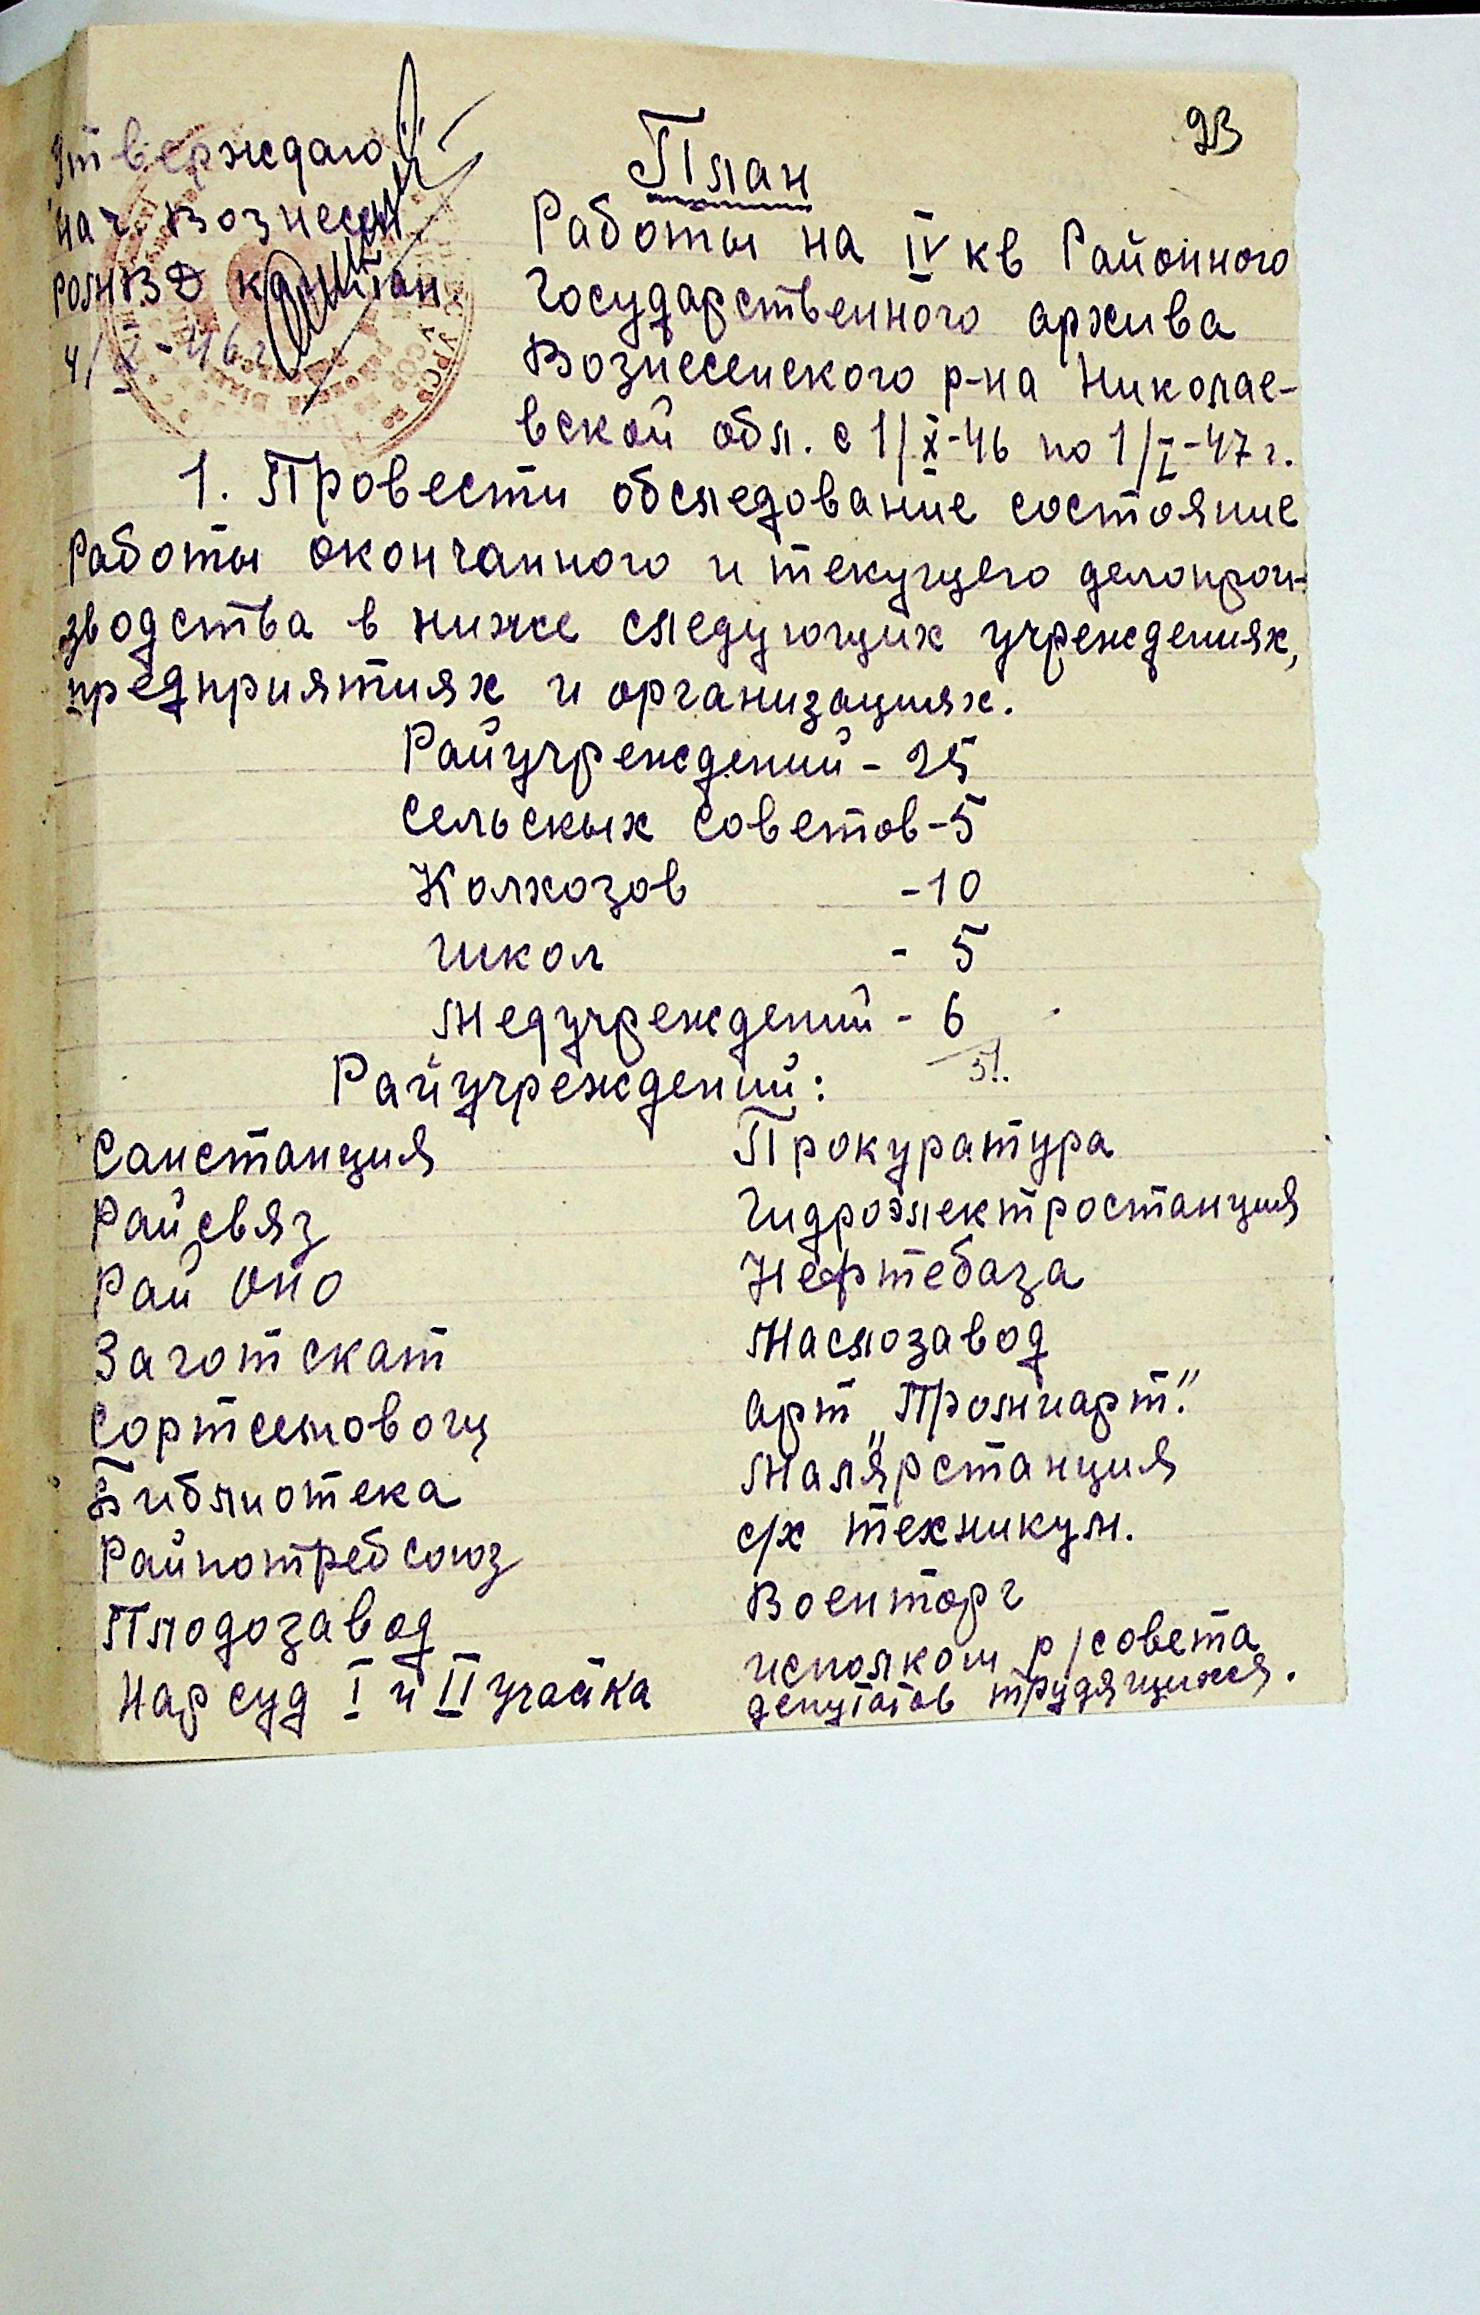 93
Утверждаю
Нач. Вознесен.
РОМВД капитан
4/X-46 г.
План
Работы на IV кв Районного
Государственного архива
Вознесенского р-на Николае-
вской обл. с 1/X-46 по 1/I-47 г.
1. Провести обследование состояние
работы окончанного и текущего делопрои-
зводства в ниже следующих учреждениях,
предприятиях и организациях.
Райучреждений - 25
Сельскых советов - 5
Колхозов - 10
Школ - 5
Медучреждений - 6
51.
Райучреждений:
Санстанция
Райсвяз
Рай ОНО
Заготскат
Сортсемовощ
Библиотека
Райпотребсоюз
Плодозавод
Нарсуд I и II участка
Прокуратура
Гидроэлектростанция
Нефтебаза
Маслозавод
Арт "Промчарт."
Малярстанция
с/х техникум.
Военторг
исполком р/совета
депутатов трудящихся.